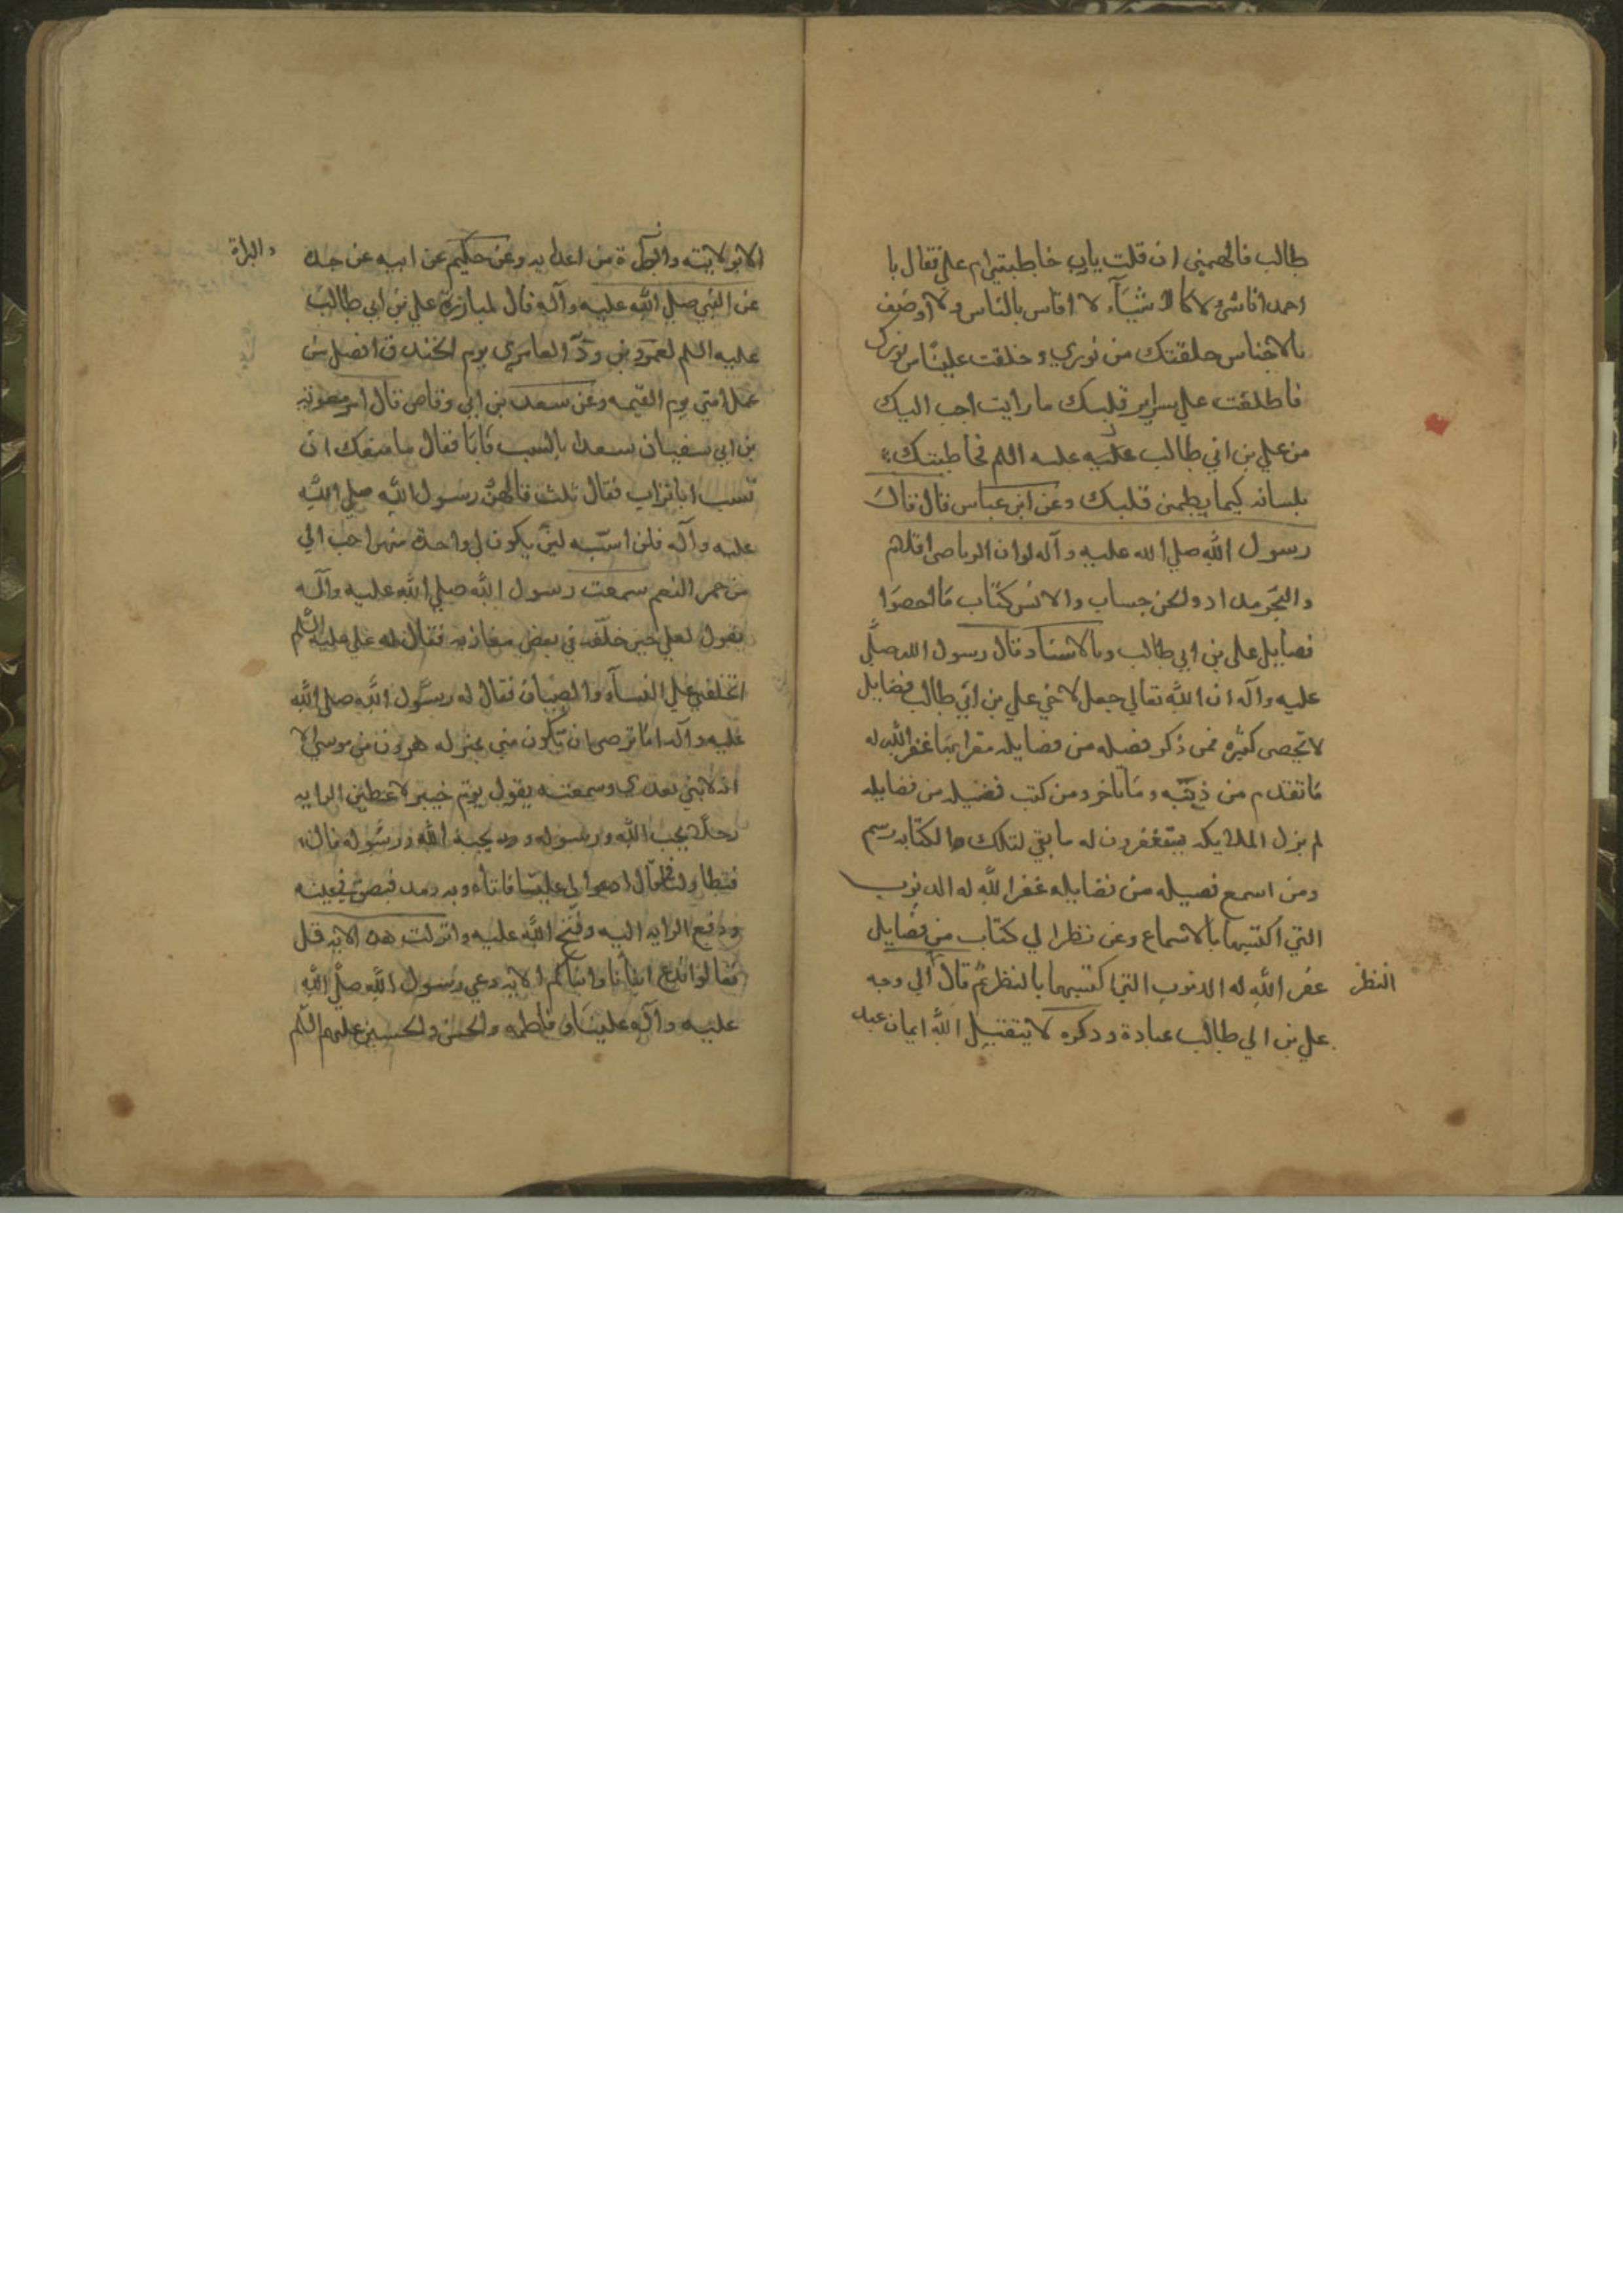 طالب فالهمني ان قلت يارب خاطبتني ام علي فقال يا
احمد انا شيء لا كالاشيآء لا اقاس بالناس ولا اوصف
بالاجناس خلقتك من نوري وخلقت عليًا من نورك
فاطلعت علي سراير قلبك ما رايت احب اليك
من علي بن ابي طالب عليه السلم فخاطبتك
بلسانه كيما يطمئن قلبك وعن ابن عباس قال قال
رسول الله صلي الله عليه وآله لو ان الرياض اقلام
والبحر مداد والجن حساب والانس كتاب ما احصوا
فضايل علي بن ابي طالب وبالاسناد قال رسول الله صلي
عليه وآله ان الله تعالي جعل لاخي علي بن ابي طالب فضايل
لا تحصي كثره فمن ذكر فضيله من فضايله مقرا بها غفر الله له
ما تقدم من ذنبه وما تاخر ومن كتب فضيله من فضايله
لم يزل الملايكه يستغفرون له ما بقي لتلك الكتابه رسم
ومن استمع فضيله من فضايله غفر الله له الذنوب
التي اكتسبها بالاستماع ومن نظر الي كتاب من فضايل
غفر الله له الذنوب التي اكتسبها بالنظر ثم قال الي وجه
النظر
علي بن ابي طالب عبادة وذكره لا يتقبل الله ايمان عبد
الا بولايته والبراة من اعدايه وعن حكيم عن ابيه عن جده
والبراة
عن النبي صلي الله عليه وآله قال لمبارزة علي بن ابي طالب
عليه السلم لعمرو بن ودّ العامري يوم الخندق افضل من
عمل امتي يوم القيمه وعن سعد بن ابي وقاص قال امر معوية
بن ابي سفيان سعدا بالسب فابا فقال ما منعك ان
تسب ابا تراب فقال ثلث قالهن رسول الله صلي الله
عليه وآله فلن اسبّه لئن يكون لي واحدة منهن احب الي
من حمر النعم سمعت رسول الله صلي الله عليه وآله
يقول لعلي حين خلّفه في بعض مغازيه فقال له علي عليه السلم
اتخلفني علي النسآء والصبيان فقال له رسول الله صلي الله
عليه وآله اما ترضي ان تكون مني بمنزله هرون من موسي الا
انه لا نبي بعدي وسمعته يقول يوم خيبر لاعطين الرايه
رجلا يحب الله ورسوله ويحبه الله ورسوله قال
فتطاولنا فقال ادعوا لي عليًا فاتاه وبه رمد فبصق في عينه
ودفع الرايه اليه وفتح الله عليه وانزلت هذه الايه قل
تعالوا ندع ابنآنا وابنآكم الايه دعي رسول الله صلي الله
عليه وآله عليًا وفاطمه والحسن والحسين عليهم السلم